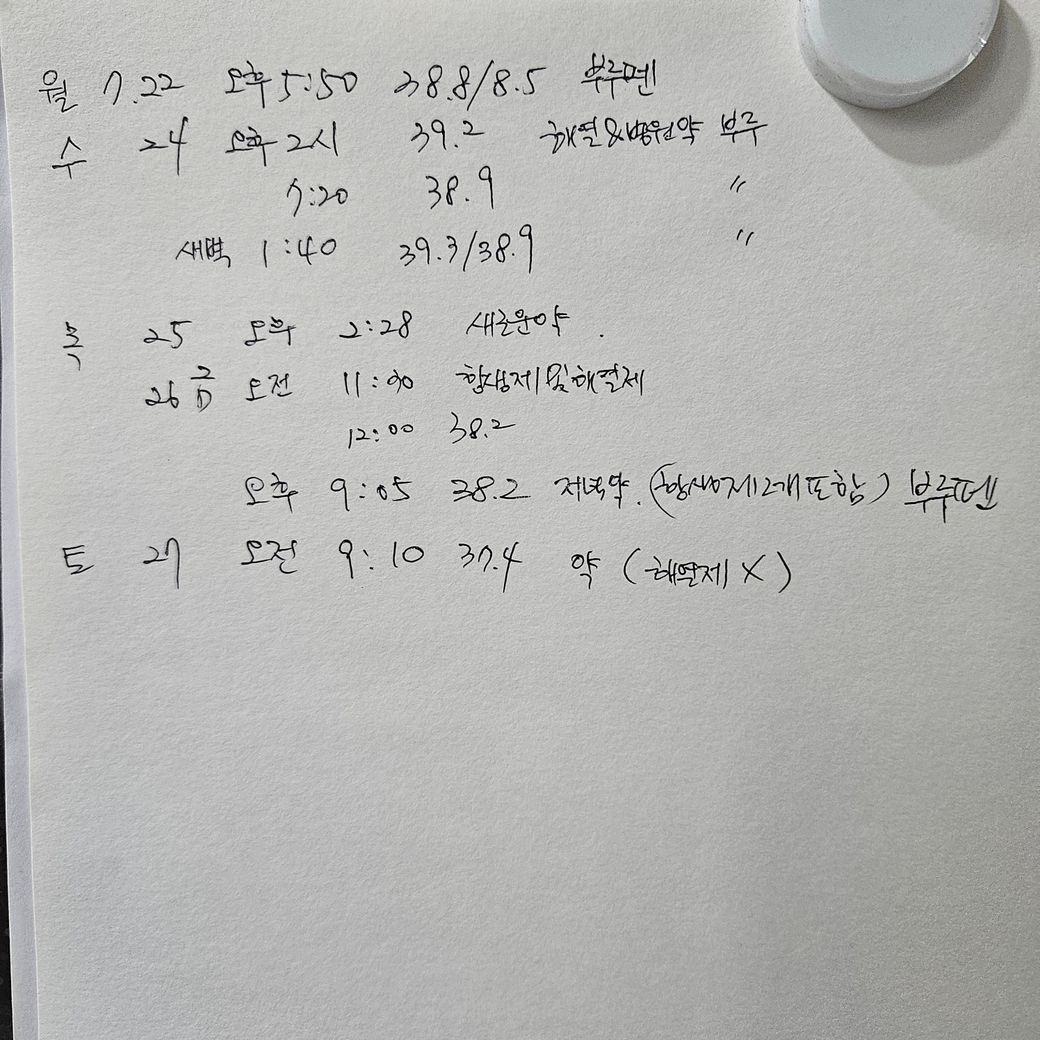 월 7.22 오후 5:50 38.8/8.5 부루펜
수 24 오후 2시 39.2 해열&병원약 부루
7:20 38.9 〃
새벽 1:40 39.3/38.9 〃
목 25 오후 2:28 새로운약.
26 금 오전 11:90 항생제및해열제
12:00 38.2
오후 9:05 38.2 저녁약.(항생제2개포함) 부루펜
토 27 오전 9:10 37.4 약 (해열제X)